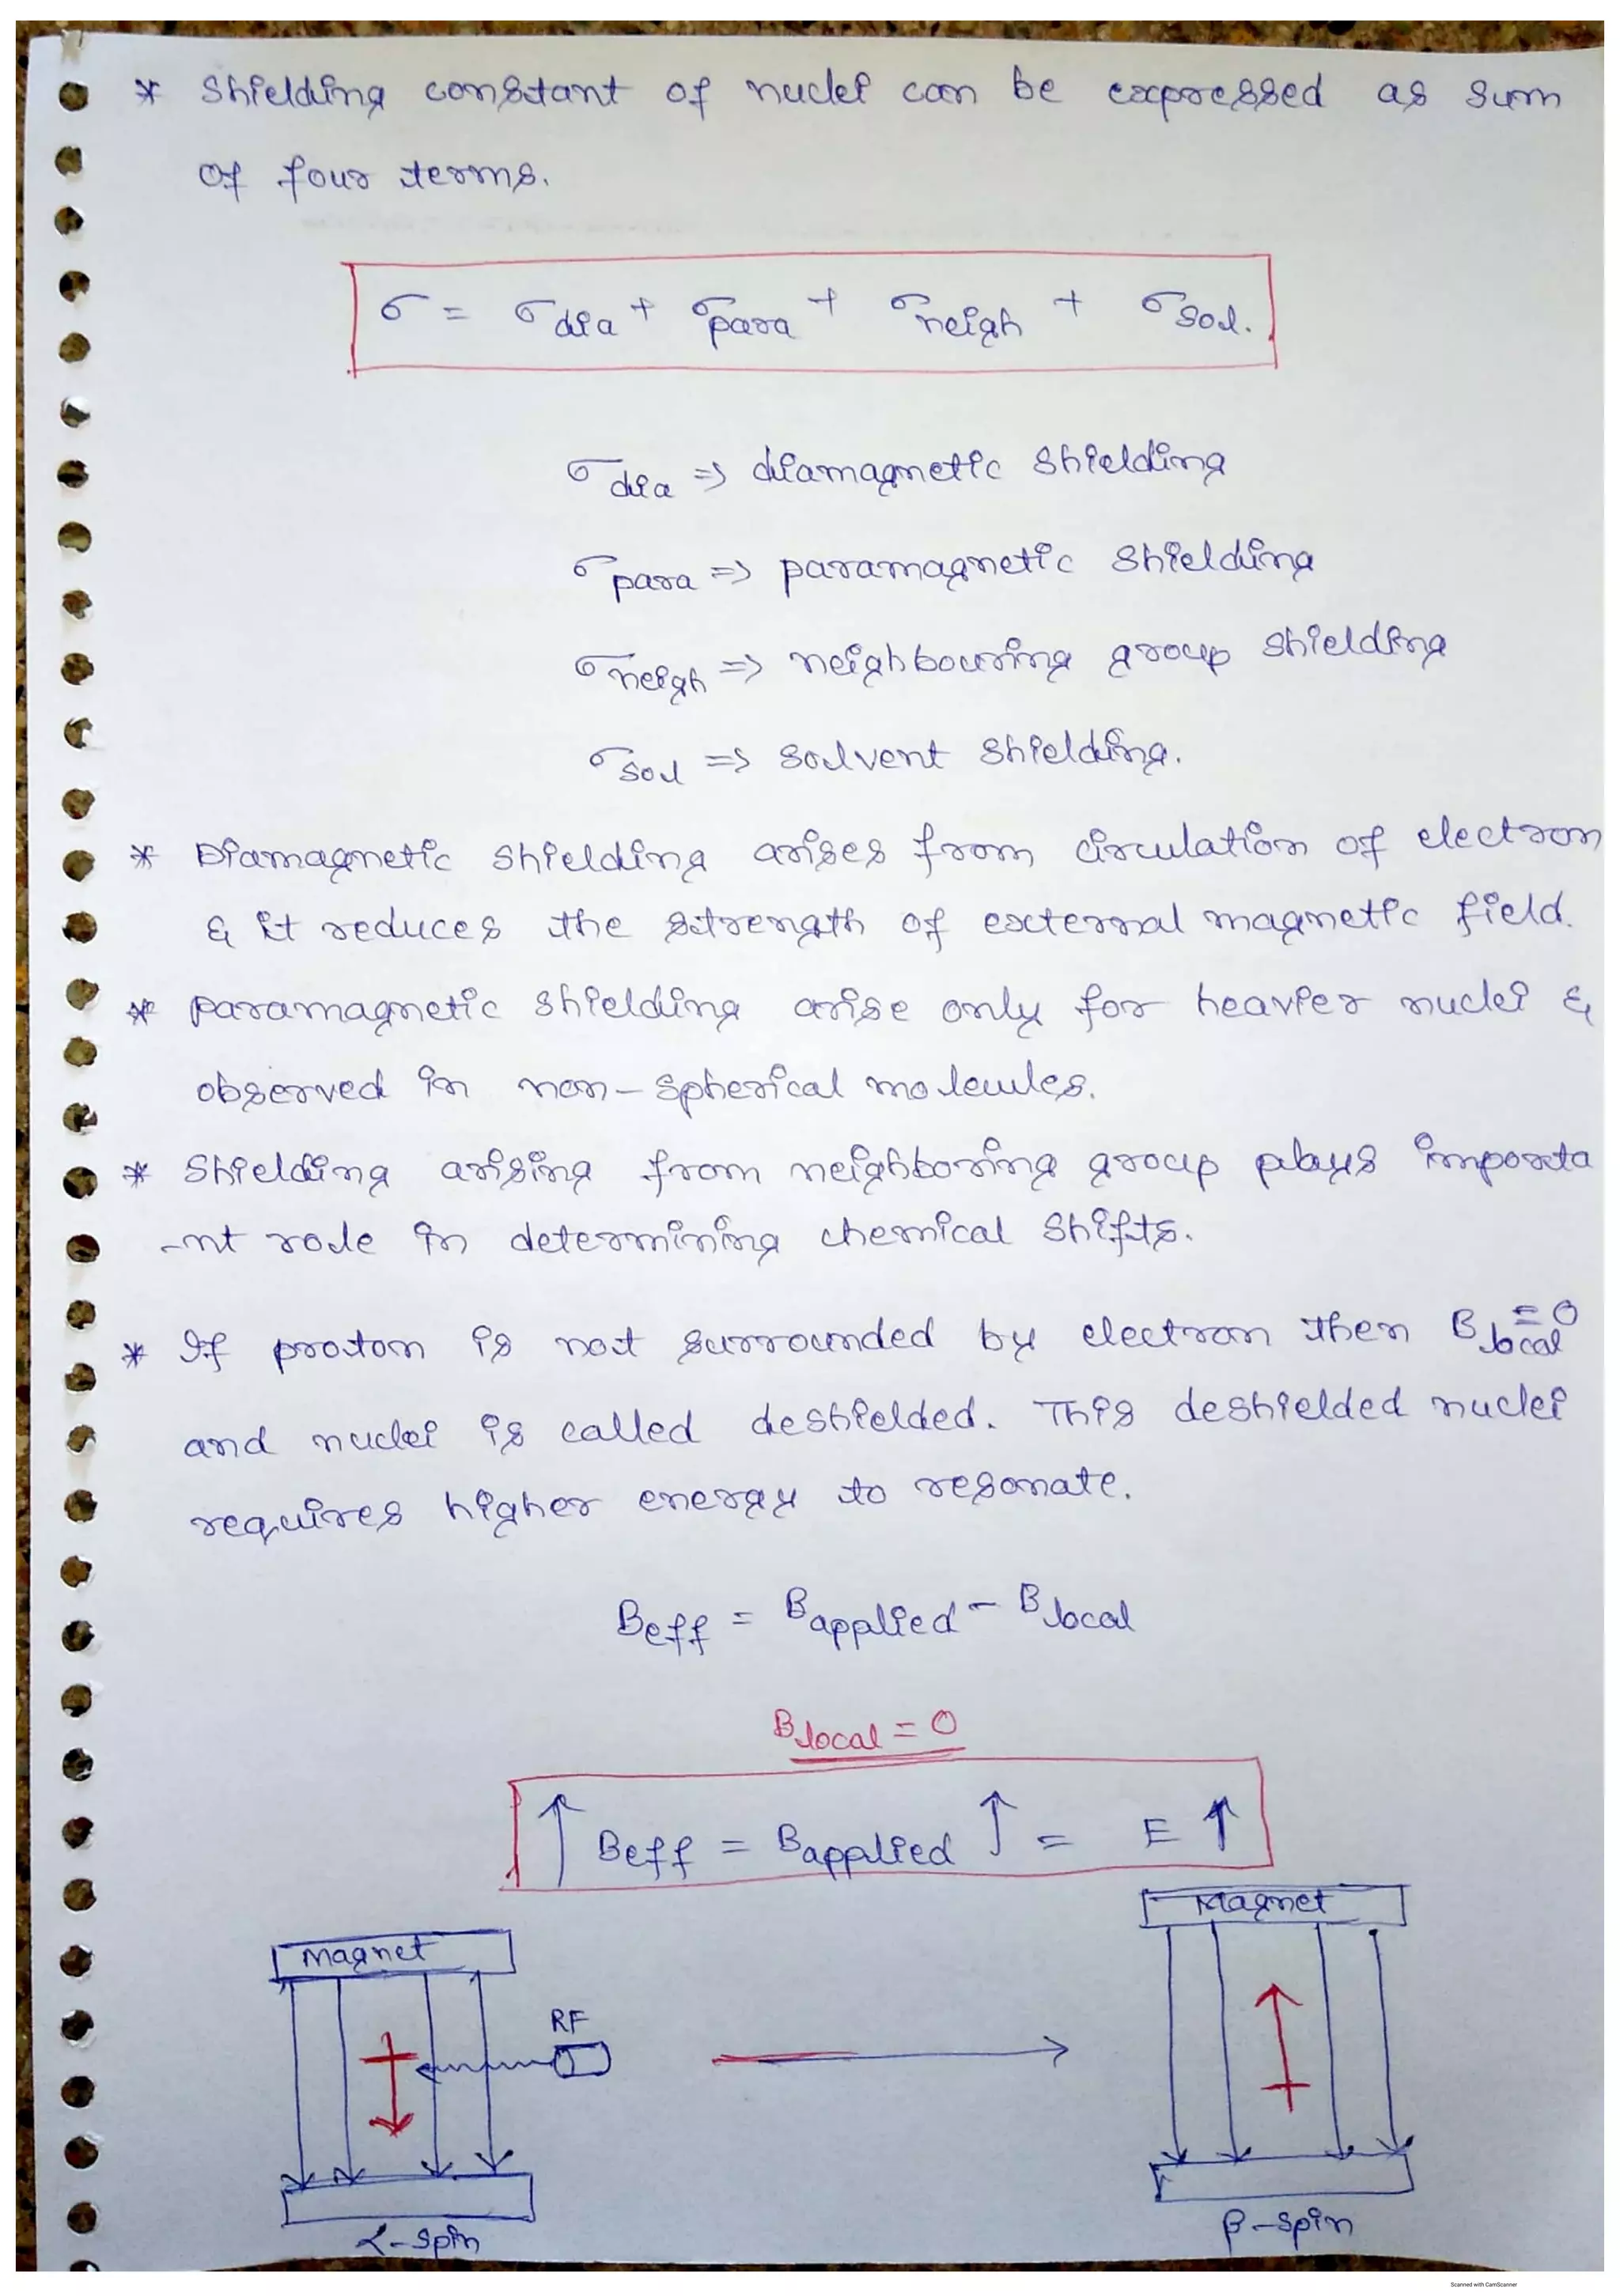 * Shielding constant of nuclei can be expressed as sum
of four terms.
σ = σdia + σpara + σneigh + σsol.
σdia => diamagnetic shielding
σpara => paramagnetic shielding
σneigh => neighbouring group shielding
σsol => solvent shielding.
* Diamagnetic shielding arises from circulation of electron
& it reduces the strength of external magnetic field.
* paramagnetic shielding arise only for heavier nuclei &
observed in non-spherical molecules.
* Shielding arising from neighboring group plays importa
-nt role in determining chemical shifts.
* If proton is not surrounded by electron then Blocal = 0
and nuclei is called deshielded. This deshielded nuclei
requires higher energy to resonate.
Beff = Bapplied - Blocal
Blocal = 0
↑ Beff = Bapplied ↑ = E ↑
Magnet
Magnet
RF
α-spin
β-spin
Scanned with CamScanner